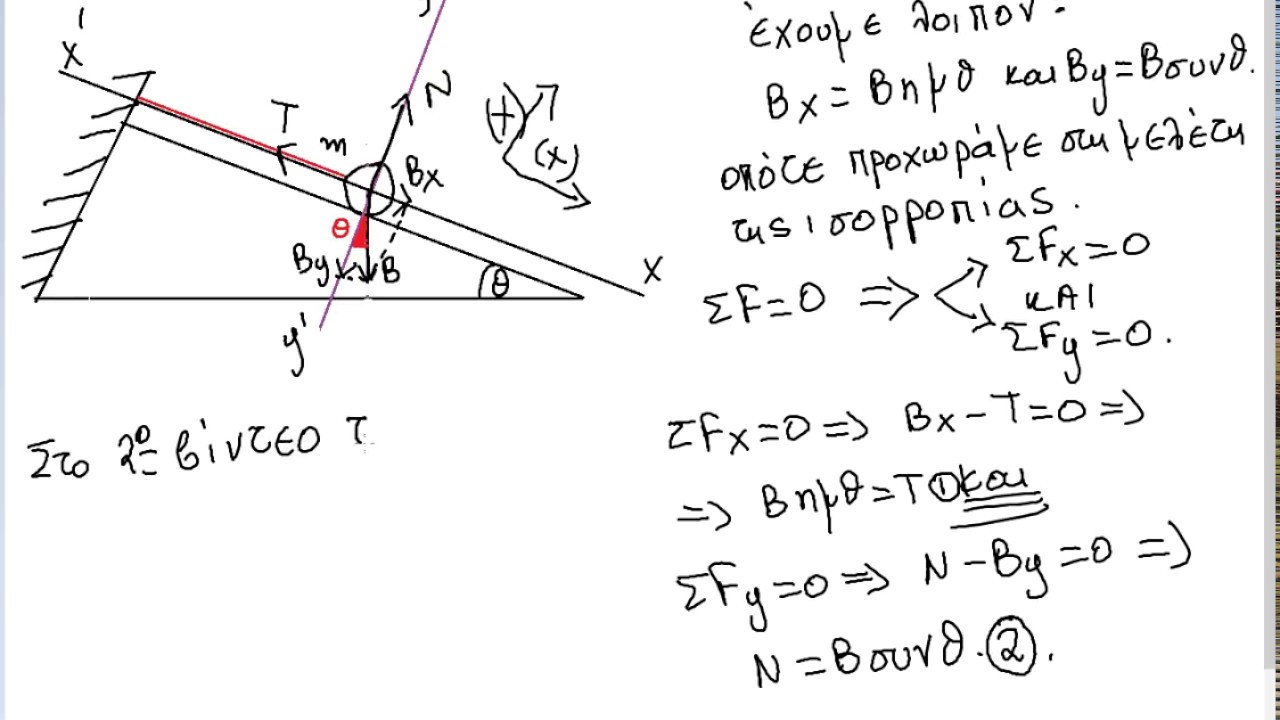 x'
T
m
N
(+)
(x)
Bx
θ
By
B
θ
x
y'
Στο 2º βίντεο τ
έχουμε λοιπόν.
Bx = Bημθ και By = Βσυνθ.
οπότε προχωράμε στη μελέτη
της ισορροπίας.
ΣFx = 0
ΣF = 0 => ΚΑΙ
ΣFy = 0.
ΣFx = 0 => Bx - T = 0 =>
=> Βημθ = T ① και
ΣFy = 0 => N - By = 0 =>
N = Βσυνθ. ②.